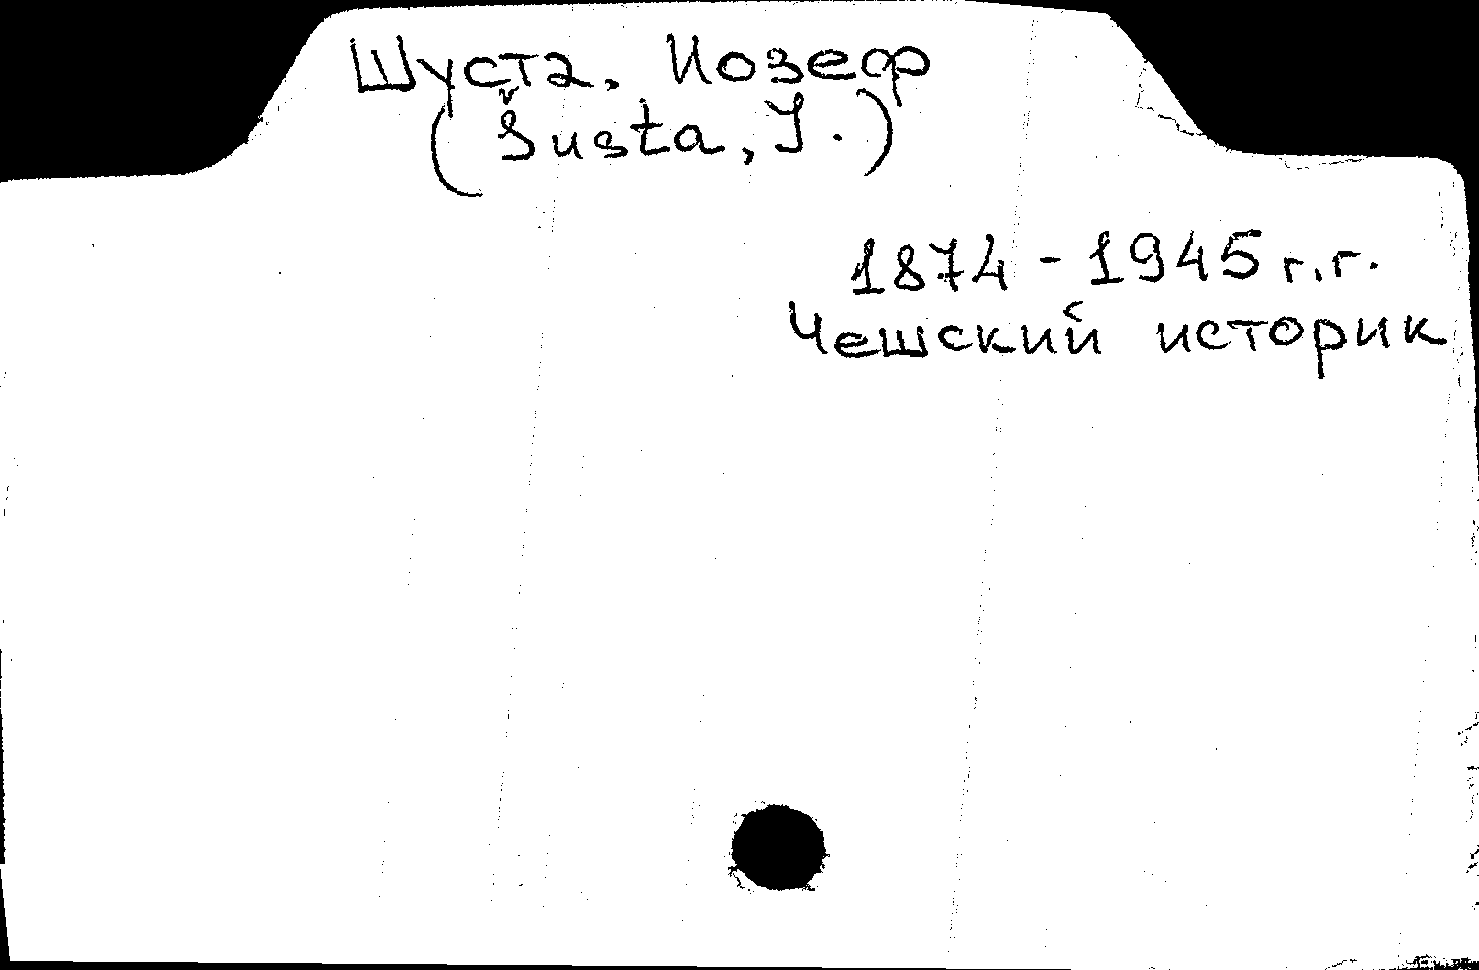 Шуста, Иозеф
(Šusta, J.)
1874 - 1945 г.г.
Чешский историк